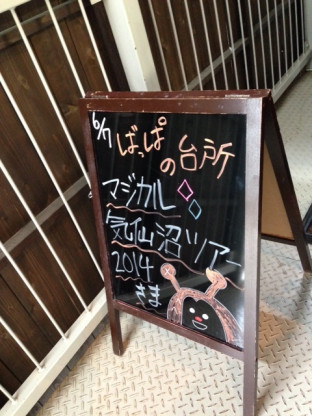 6/7
ばっぱ
の台所
マジカル
気仙沼ツアー
2014
きま